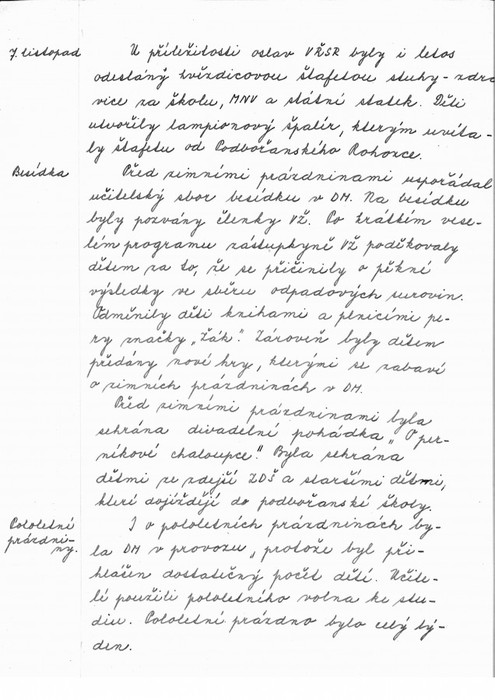 7. listopad
U příležitosti oslav VŘSR byly i letos
odeslány hvězdicovou štafetou stuhy-zdra
vice za školu, MNV a státní statek. Děti
utvořily lampionový špalír, kterým uvíta-
ly štafetu od Podbořanského Rohozce.
Besídka
Před zimními prázdninami uspořádal
učitelský sbor besídku v DM. Na besídku
byly pozvány členky VŽ. Po krátkém vese-
lém programu zástupkyně VŽ poděkovaly
dětem za to, že se přičinily o pěkné
výsledky ve sběru odpadových surovin.
Odměnily děti knihami a plnicími pe-
ry značky „Žák". Zároveň byly dětem
předány nové hry, kterými se zabaví
o zimních prázdninách v DM.
Před zimními prázdninami byla
sehrána divadelní pohádka „O per-
níkové chaloupce". Byla sehrána
dětmi ze zdejší ZDŠ a staršími dětmi,
které dojíždějí do podbořanské školy.
Pololetní
prázdni-
ny.
I v pololetních prázdninách by-
la DM v provozu, protože byl při-
hlášen dostatečný počet dětí. Učite-
lé použili pololetního volna ke stu-
diu. Pololetní prázdno bylo celý tý-
den.